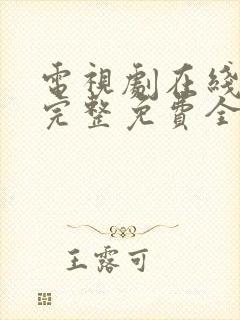 電視劇在綫
完整免費全
王露可